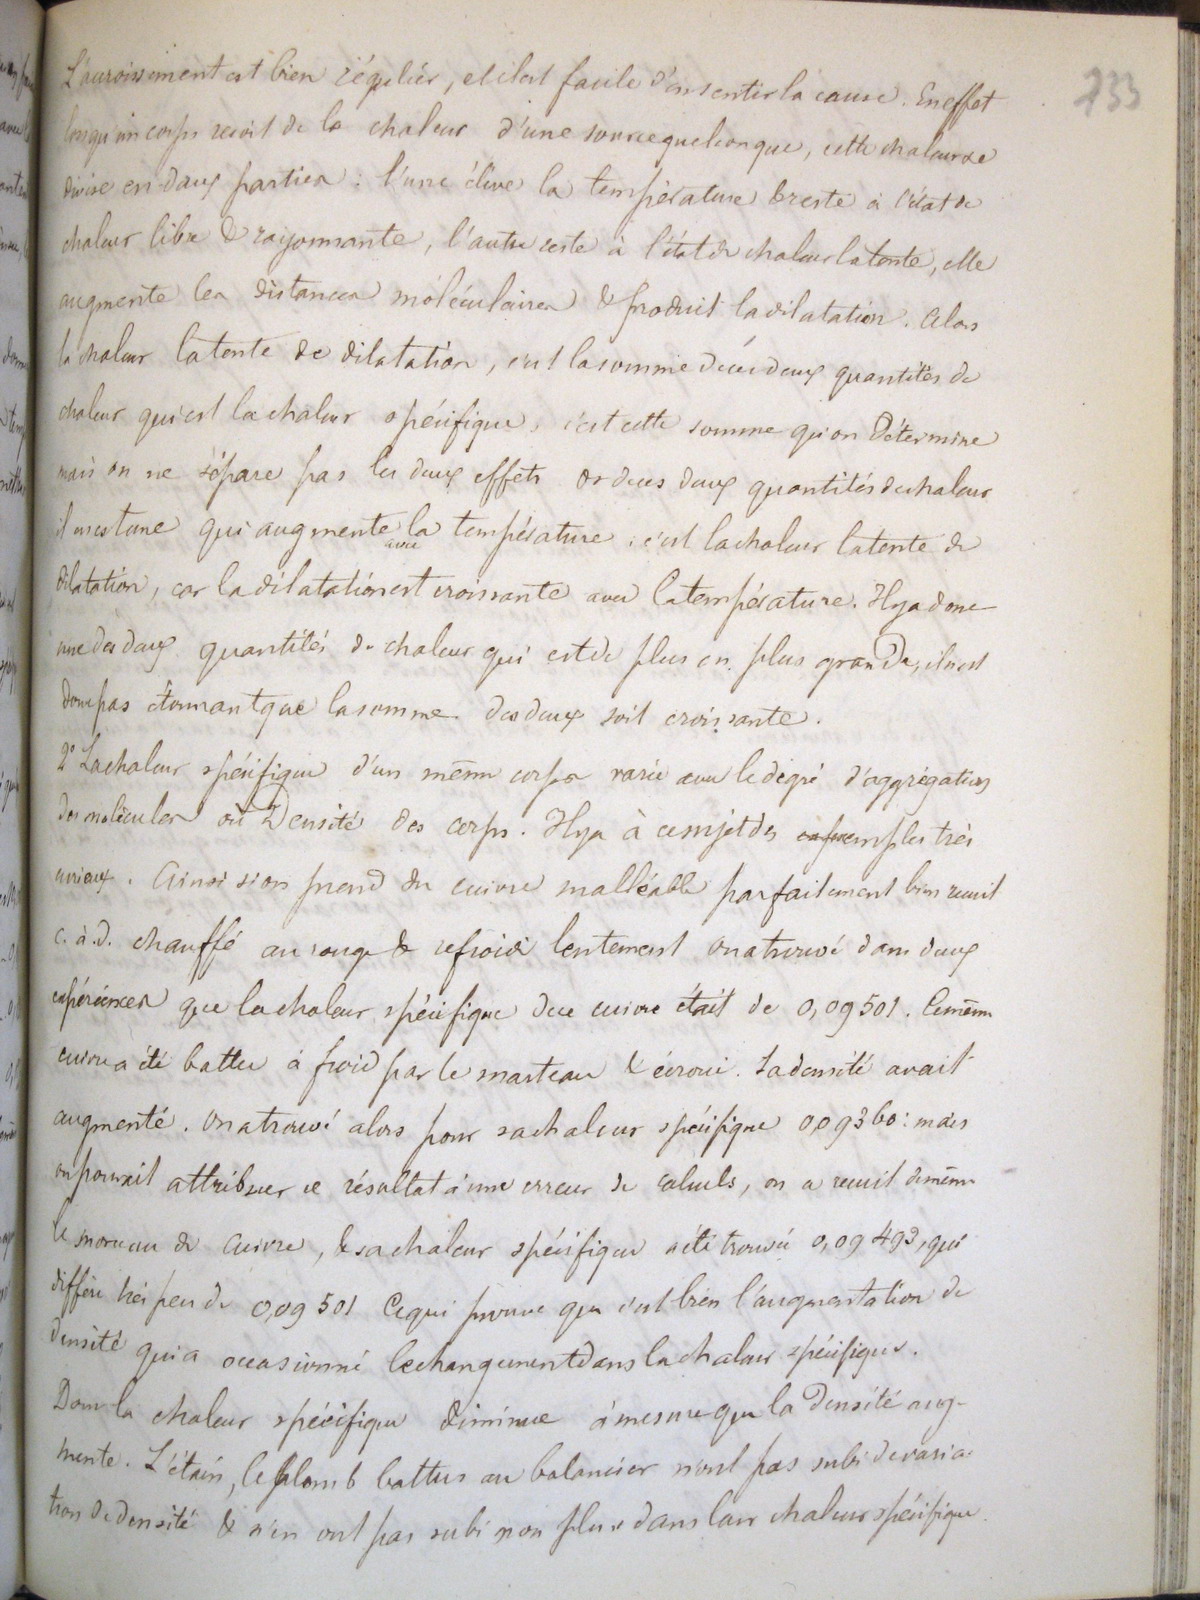 733
L'accroissement est bien régulier, et il est facile d'en sentir la cause. En effet
lorsqu'un corps reçoit de la chaleur d'une source quelconque, cette chaleur se
divise en deux parties : l'une élève la température & reste à l'état de
chaleur libre & rayonnante, l'autre reste à l'état de chaleur latente, elle
augmente les distances moléculaires & produit la dilatation. Alors
la chaleur latente de dilatation, c'est la somme de ces deux quantités de
chaleur qui est la chaleur spécifique, c'est cette somme qu'on détermine
mais on ne sépare pas les deux effets or de ces deux quantités de chaleur
il en est une qui augmente avec la température, c'est la chaleur latente de
dilatation, car la dilatation est croissante avec la température. Il y a donc
une des deux quantités de chaleur qui est de plus en plus grande, il n'est
donc pas étonnant que la somme des deux soit croissante.
2° La chaleur spécifique d'un même corps varie avec le dégré d'aggrégation
des molécules ou densité des corps. Il y a à ce sujet des exemples très
curieux. Ainsi si on prend du cuivre malléable parfaitement bien recuit
c. à. d. chauffé au rouge & refroidi lentement on a trouvé dans deux
expériences que la chaleur spécifique de ce cuivre était de 0,09501. Ce même
cuivre a été battu à froid par le marteau & écroui. Sa densité avait
augmenté. On a trouvé alors pour sa chaleur spécifique 0,09360 : mais
on pouvait attribuer ce résultat à une erreur de calculs, on a recuit de même
le morceau de cuivre, & sa chaleur spécifique a été trouvée 0,09493, qui
diffère très peu de 0,09501 Ce qui prouve que c'est bien l'augmentation de
densité qui a occasionné le changement dans la chaleur spécifique.
Donc la chaleur spécifique diminue à mesure que la densité aug-
mente. L'étain, le plomb battus au balancier n'ont pas subi de varia-
tion de densité & n'en ont pas subi non plus dans leur chaleur spécifique.